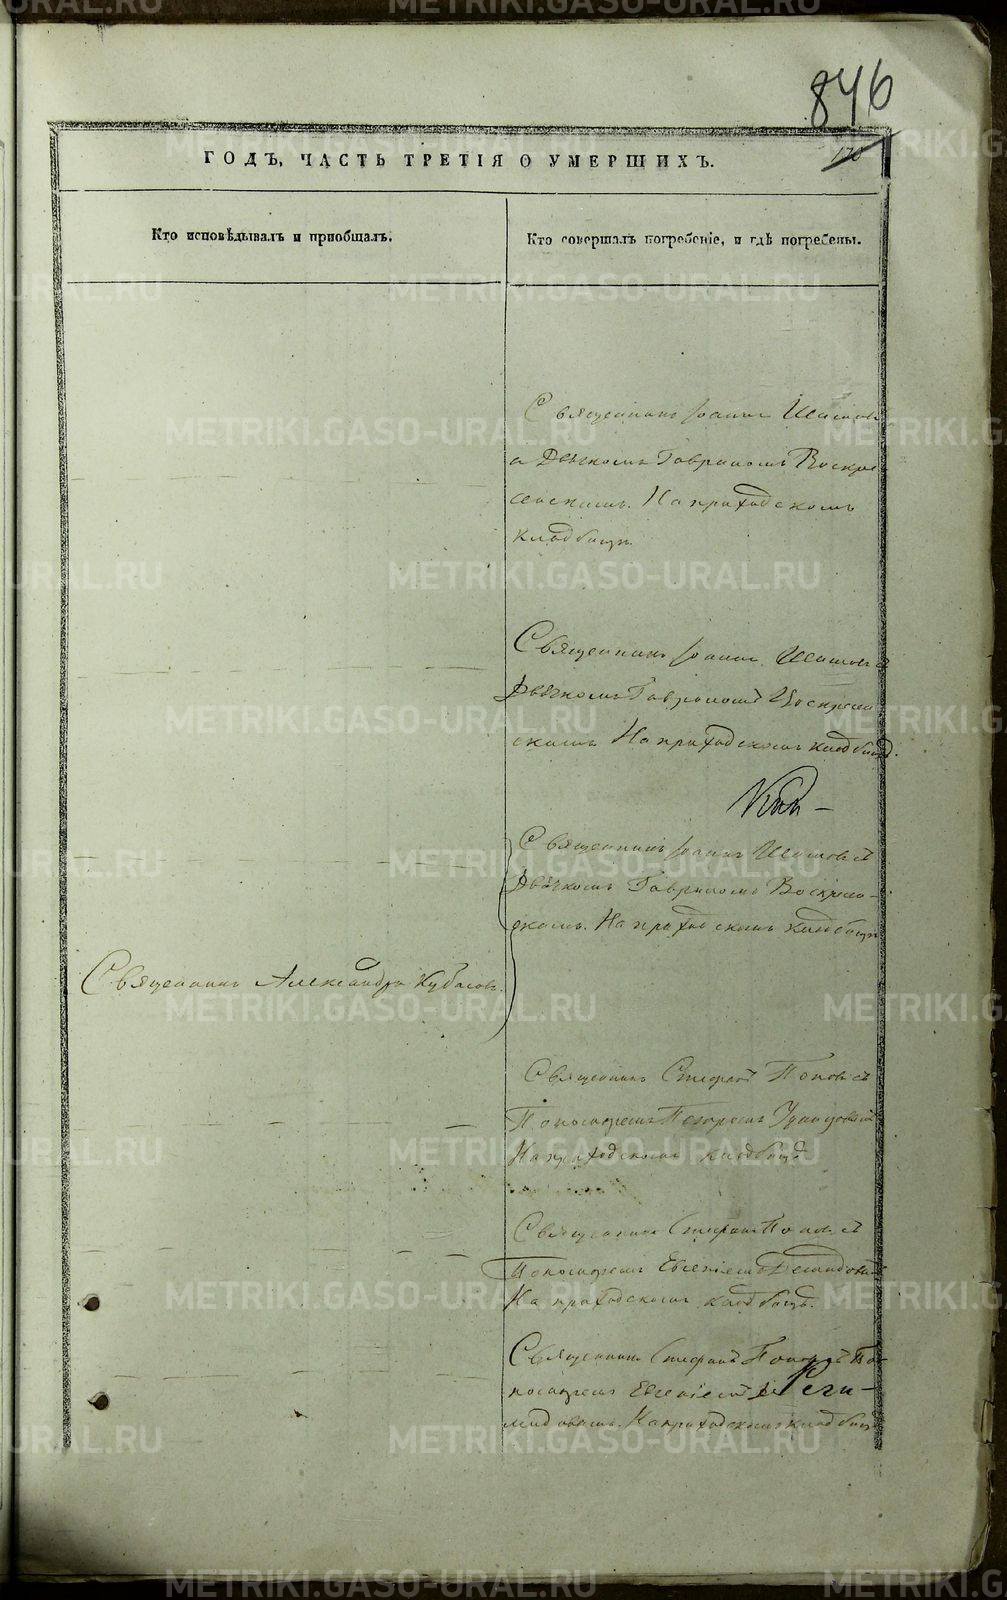 846
170
ГОДЪ, ЧАСТЬ ТРЕТІЯ О УМЕРШИХЪ.
Кто исповѣдывалъ и пріобщалъ.
Кто совершалъ погребеніе, и гдѣ погребены.
Священникъ Іоаннъ
а Дьячкомъ Гавриломъ Воскре
сенскимъ. На приходскомъ
кладбищѣ.
Священникъ Іоаннъ
Дьячкомъ Гавриломъ Воскресен
скимъ На приходскомъ кладбищѣ.
Священникъ Іоаннъ
Дьячкомъ Гавриломъ Воскресен-
скимъ. На приходскомъ кладбищѣ
Священникъ Александръ Кубасовъ.
Священникъ Стефанъ Поповъ съ
Пономаремъ Петромъ
На приходскомъ кладбищѣ
Священникъ Стефанъ Поповъ съ
Пономаремъ Евгеніемъ
На приходскомъ кладбищѣ.
Священникъ Стефанъ Поповъ съ По-
номаремъ Евгеніемъ
На приходскомъ кладбищѣ
METRIKI.GASO-URAL.RU